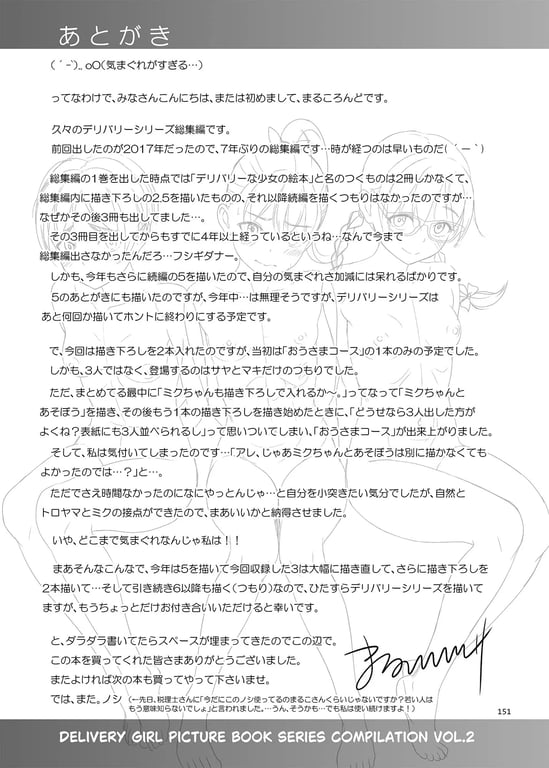 あとがき
( ´ -`).｡oO(気まぐれがすぎる…)
ってなわけで、みなさんこんにちは、または初めまして、まるころんどです。
久々のデリバリーシリーズ総集編です。
前回出したのが2017年だったので、7年ぶりの総集編です…時が経つのは早いものだ( ´ー｀)
総集編の1巻を出した時点では「デリバリーな少女の絵本」と名のつくものは2冊しかなくて、
総集編内に描き下ろしの2.5を描いたものの、それ以降続編を描くつもりはなかったのですが…
なぜかその後3冊も出してました…。
その3冊目を出してからもすでに4年以上経っているというね…なんで今まで
総集編出さなかったんだろ…フシギダナー。
しかも、今年もさらに続編の5を描いたので、自分の気まぐれさ加減には呆れるばかりです。
5のあとがきにも描いたのですが、今年中…は無理そうですが、デリバリーシリーズは
あと何回か描いてホントに終わりにする予定です。
で、今回は描き下ろしを2本入れたのですが、当初は「おうさまコース」の1本のみの予定でした。
しかも、3人ではなく、登場するのはサヤとマキだけのつもりでした。
ただ、まとめてる最中に「ミクちゃんも描き下ろしで入れるか～。」ってなって「ミクちゃんと
あそぼう」を描き、その後もう1本の描き下ろしを描き始めたときに、「どうせなら3人出した方が
よくね？表紙にも3人並べられるし」って思いついてしまい、「おうさまコース」が出来上がりました。
そして、私は気付いてしまったのです…「アレ、じゃあミクちゃんとあそぼうは別に描かなくても
よかったのでは…？」と…。
ただでさえ時間なかったのになにやっとんじゃ…と自分を小突きたい気分でしたが、自然と
トロヤマとミクの接点ができたので、まあいいかと納得させました。
いや、どこまで気まぐれなんじゃ私は！！
まあそんなこんなで、今年は5を描いて今回収録した3は大幅に描き直して、さらに描き下ろしを
2本描いて…そして引き続き6以降も描く(つもり)なので、ひたすらデリバリーシリーズを描いて
ますが、もうちょっとだけお付き合いいただけると幸いです。
と、ダラダラ書いてたらスペースが埋まってきたのでこの辺で。
この本を買ってくれた皆さまありがとうございました。
またよければ次の本も買ってやって下さいませ。
では、また。ノシ (←先日、税理士さんに「今だにこのノシ使ってるのまるこさんくらいじゃないですか？若い人は
もう意味知らないでしょ」と言われました。…うん、そうかも…でも私は使い続けますよ！)
151
DELIVERY GIRL PICTURE BOOK SERIES COMPILATION VOL.2